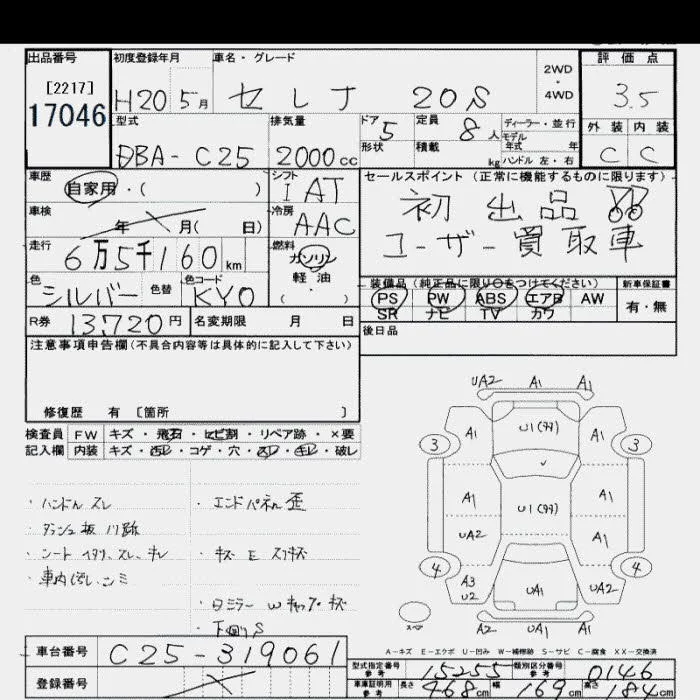 出品番号
[2217]
17046
初度登録年月
H20 5月
車名・グレード
セレナ 20S
2WD
・
4WD
評価点
3.5
外装 内装
C C
型式
DBA-C25
排気量
2000cc
ドア
5
形状
定員
8人
積載
kg
ディーラー・並行
モデル
年式 年
ハンドル 左・右
車歴
自家用・( )
シフト
IAT
車検
年 月( 日)
冷房
AAC
走行
6万5千160km
燃料
ガソリン
軽油
( ・ )
色
シルバー
色替
色コード
KY0
R券
13,720円
名変期限 月 日
セールスポイント (正常に機能するものに限ります)
初出品
ユーザー買取車
装備品 (純正品に限り○をつけてください)
PS PW ABS エアB AW
SR ナビ TV カワ
新車保証書
有・無
後日品
注意事項申告欄(不具合内容等は具体的に記入して下さい)
修復歴 有 〔箇所 〕
検査員
記入欄
FW キズ・飛石・ヒビ割・リペア跡・×要
内装 キズ・汚レ・コゲ・穴・スレ・キレ・破レ
・ハンドル スレ
・ダッシュ板 ハリ跡
・シート ヘタリ、スレ、キレ
・エンドパネル 歪
・キズ E スリキズ
・下回りS
UA2 A1 A1
3 A1 U1 A1 3
A1 U1 A1
UA2 A1
4 A3 U2 UA1 UA2 4
スペア
A-キズ E-エクボ U-凹み W-補修跡 S-サビ C-腐食 XX-交換済
車台番号
C25-319061
登録番号
型式指定番号
参考
15255
類別区分番号
参考
0146
車庫証明用
参考
長さ 468cm 幅 169cm 高さ 184cm